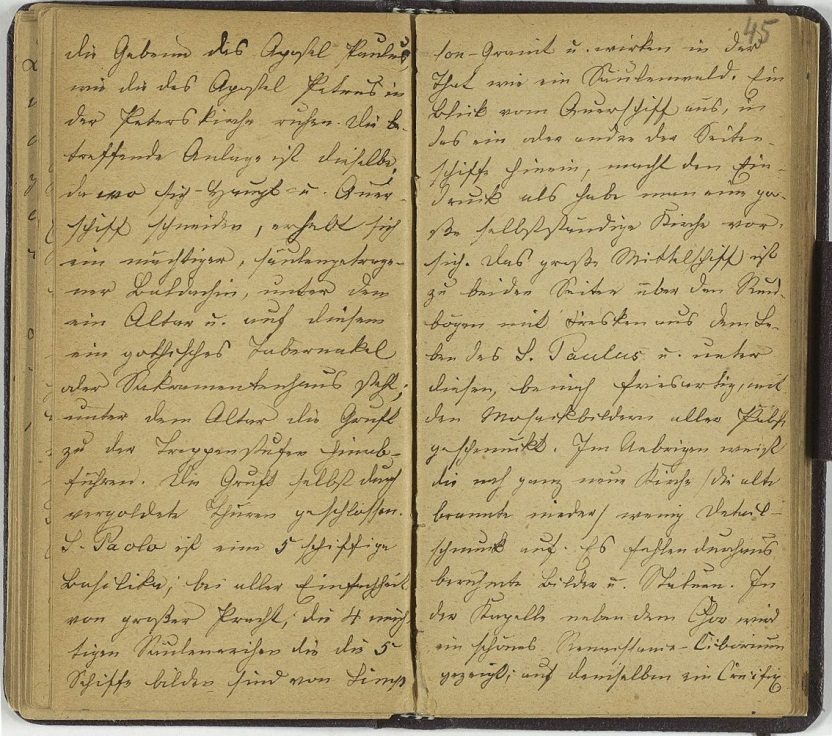 die Gebeine des Apostel Paulus,
wie die des Apostel Petrus in
der Peterskirche ruhen. Die be-
treffende Anlage ist dieselbe;
da wo sich Haupt- u. Quer-
schiff schneiden, erhebt sich
ein mächtiger, säulengetrage-
ner Baldachin, unter dem
ein Altar u. auf diesem
ein gothisches Tabernakel
oder Sakramentenhaus steht;
unter dem Altar die Gruft
zu der Treppenstufen hinab-
führen. Die Gruft selbst durch
vergoldete Thüren geschlossen.
S. Paolo ist eine 5 schiffige
Basilika; bei aller Einfachheit
von großer Pracht; die 4 mäch-
tigen Säulenreihen die die 5
Schiffe bilden sind von Simp-
45
lon-Granit u. wirken in der
That wie ein Säulenwald. Ein
Blick vom Querschiff aus, in
das ein oder andre der Seiten-
schiffe hinein, macht den Ein-
druck als habe man eine gro-
ße selbstständige Kirche vor
sich. Das große Mittelschiff ist
zu beiden Seiten über den Rund-
bögen mit Fresken aus dem Le-
ben des S. Paulus u. unter
diesen, friesartig, mit
den Mosaikbildern aller Päbste
geschmückt. Im Uebrigen weist
die noch ganz neue Kirche (die alte
brannte nieder) wenig Detail-
schmuck auf. Es fehlen durchaus
berühmte Bilder u. Statuen. In
der Kapelle neben dem Chor wird
ein schönes Renaissance-Ciborium
gezeigt; auf demselben ein Crucifix